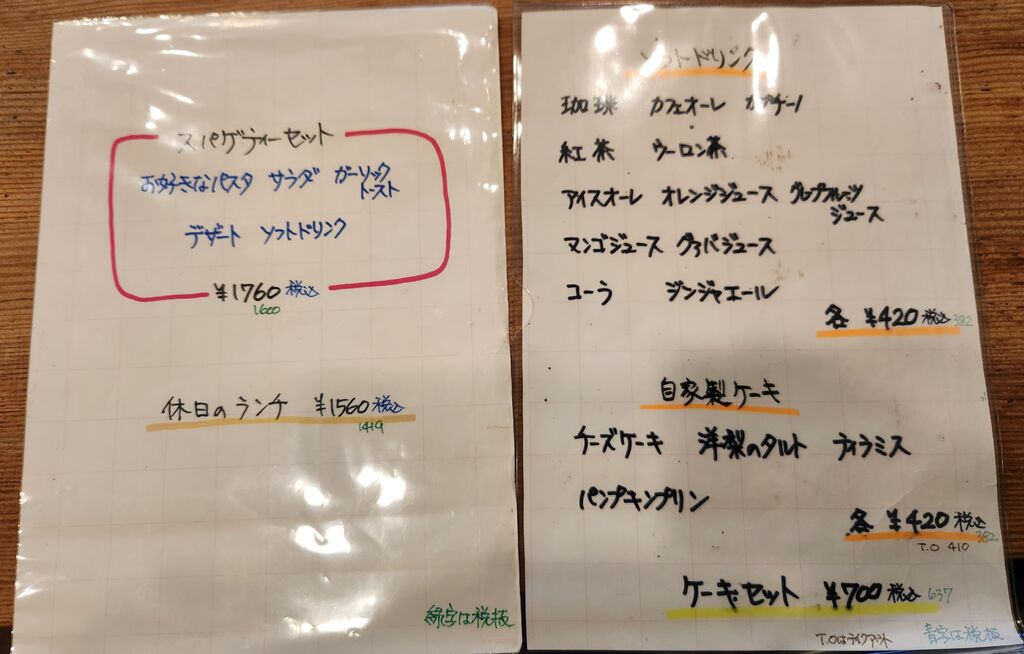 スパゲティーセット
お好きなパスタ サラダ ガーリックトースト
デザート ソフトドリンク
¥1760 税込
1600
休日のランチ ¥1560 税込
1419
緑字は税抜
ソフトドリンク
珈琲 カフェオーレ カプチーノ
紅茶 ウーロン茶
アイスオーレ オレンジジュース グレープフルーツジュース
マンゴジュース グァバジュース
コーラ ジンジャエール
各 ¥420 税込 382
自家製ケーキ
チーズケーキ 洋梨のタルト ティラミス
パンプキンプリン
各 ¥420 税込 382
T.O 410
ケーキセット ¥700 税込 637
T.Oはテイクアウト
青字は税抜